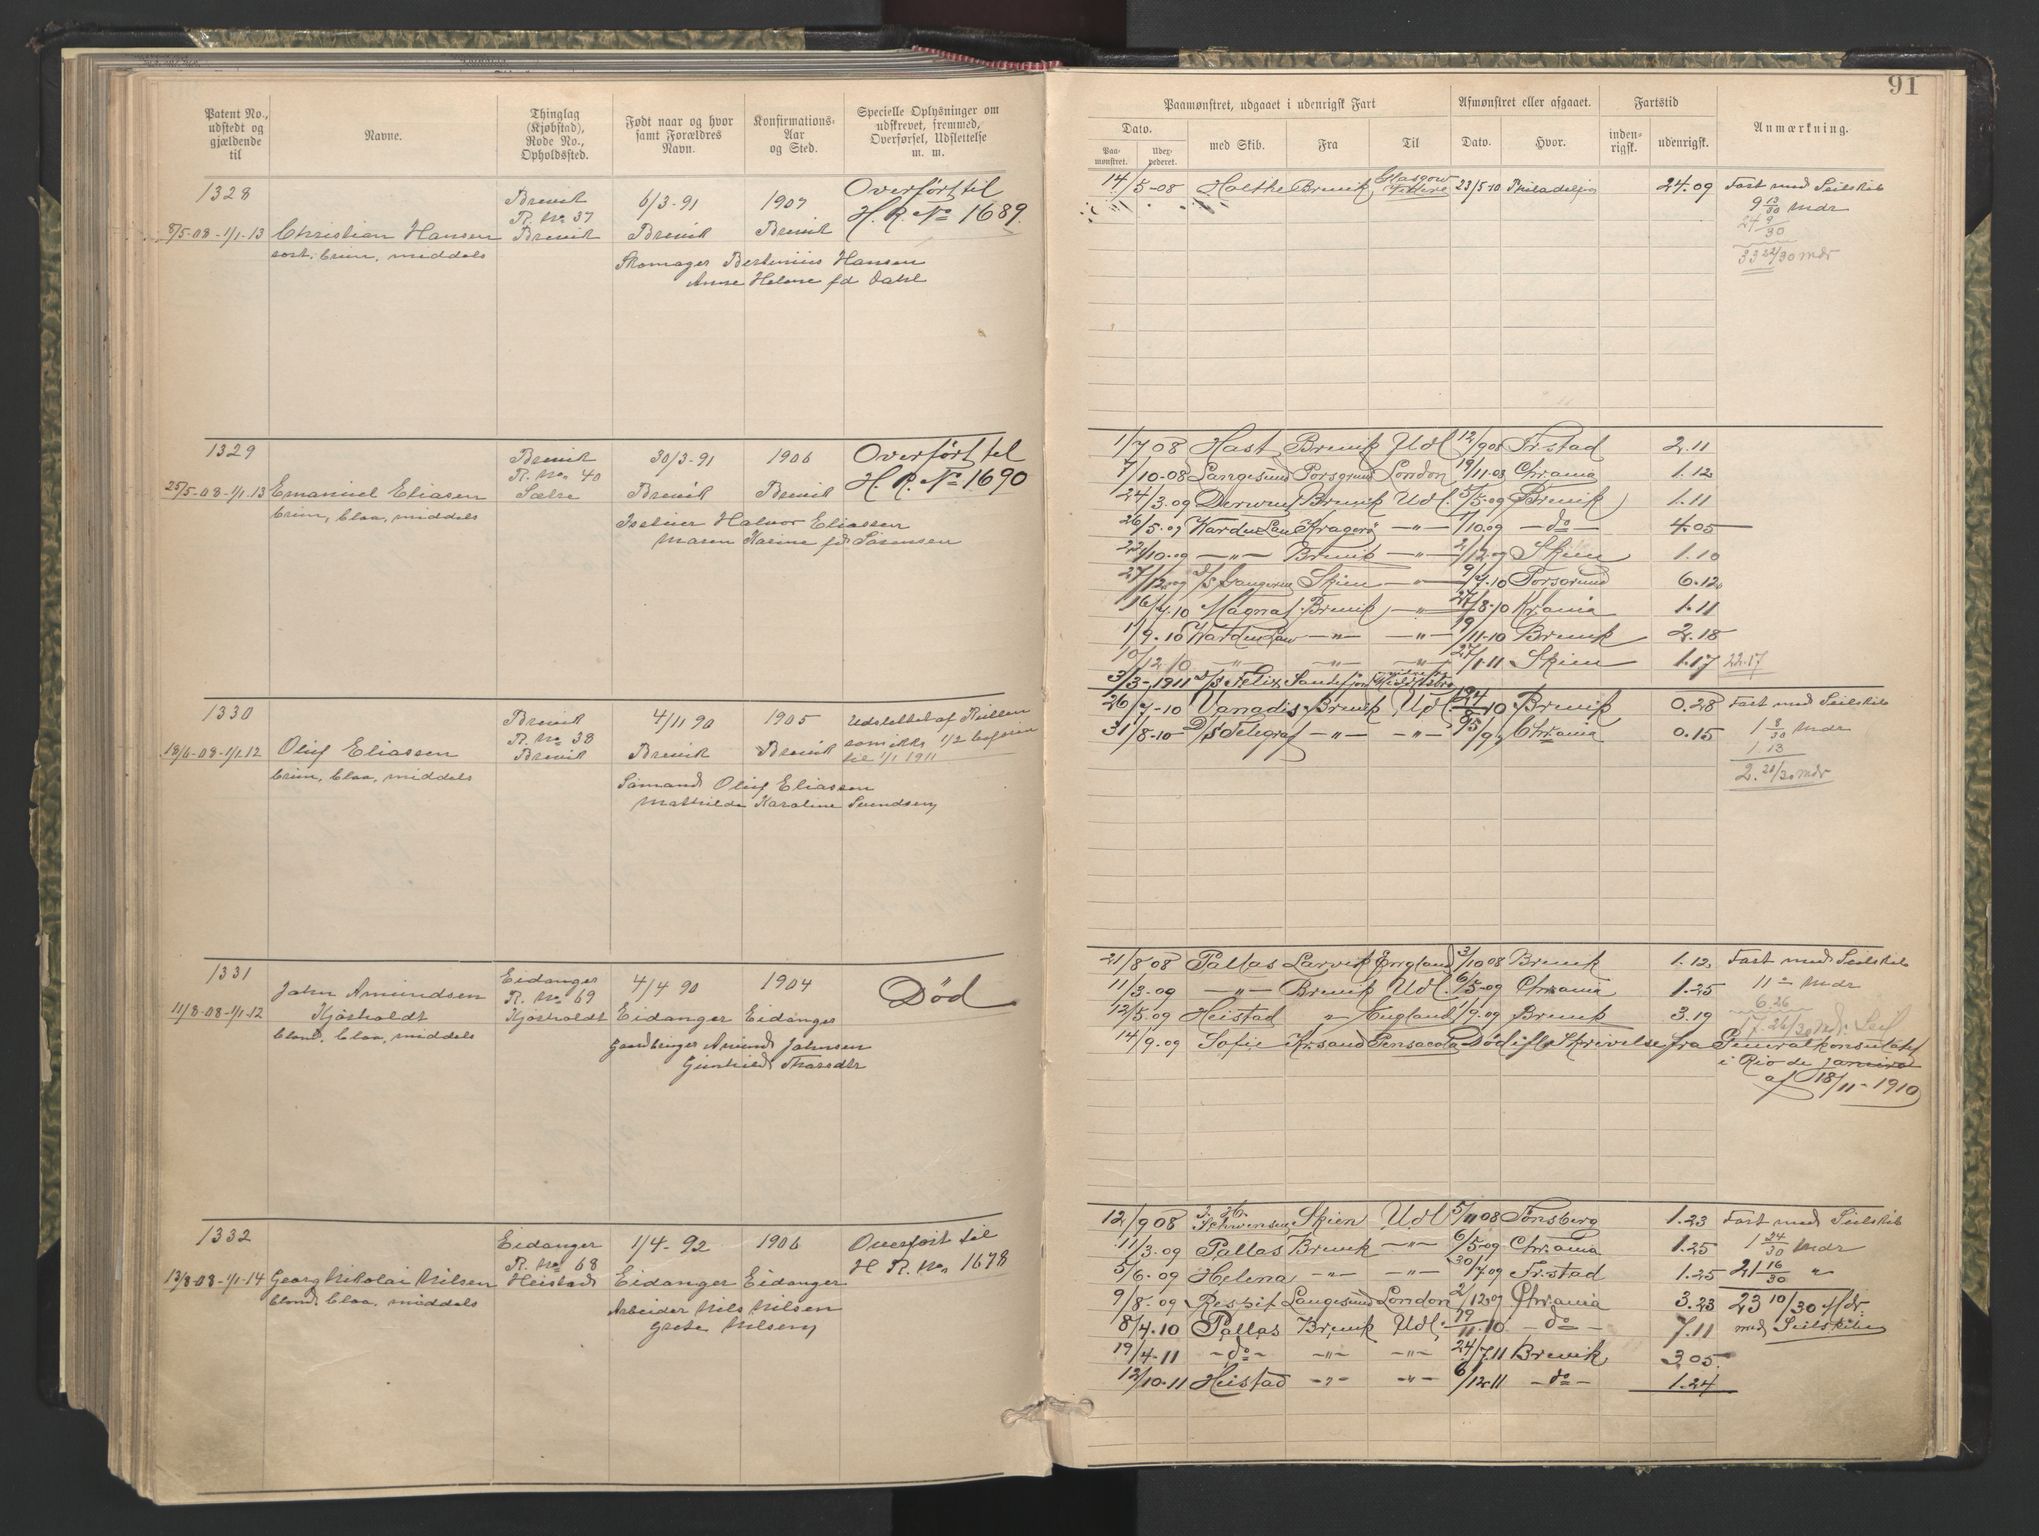 91
Patent No., udstedt og gjældende til
Navne.
Thinglag (Kjøbstad), Rode No., Opholdssted.
Født naar og hvor samt Forældres Navn.
Konfirmations-Aar og Sted.
Specielle Oplysninger om udskrevet, fremmed, Overførsel, Udslettelse m. m.
Paamønstret, udgaaet i udenrigsk Fart
Afmønstret eller afgaaet.
Fartstid
Anmærkning.
Dato.
Paa-mønstret.
Udex-pederet.
med Skib.
Fra
Til
Dato.
Hvor.
inden-rigsk.
udenrigsk.
1328 Brevik 6/3-91 1907 Overført til
R. No 37 H. R. No 1689.
8/5-08-1/1-13 Christian Hansen Brevik Brevik Brevik
sort, brun, middels Skomager Bertinius Hansen
Anne Helene fd Dahl
14/5-08 Holthe Brevik Glasgow 23/5 10 Philadelphia 24.09 Fart med Seilskib
9 13/30 Mdr
24 9/30
33 22/30 Mdr
1329 Brevik 30/3-91 1906 Overført til
R. No 40 H. R. No 1690
25/5-08-1/1-13 Emanuel Eliasen Brevik Brevik
brun, blaa, middels Halvor Eliassen
Maren Karine fd Sørensen
1/7 08 Hast Brevik Udl 12/9 08 Fr.stad 2.11
7/10-08 Langesund Porsgrund London 19/11-08 Chr.ania 1.12
24/3.09 Derwent Brevik Udl. 5/5-09 Brevik 1.11
26/5.09 Kragerø -"- 7/10.09 -do- 4.05
22/10.09 -"- Brevik -"- 2/12.09 Skien 1.10
27/12.09 Skien -"- 9/7.10 Porsgrund 6.12
16/7.10 Brevik -"- 27/8-10 Kr.ania 1.11
1/9.10 -"- -"- 19/11-10 Brevik 2.18
10/12 10 -"- -"- -"- 27/1-11 Skien 1.17 22.17
3/3-1911 D/S Felix Sandefjord
1330 Brevik 4/11 90 1905 Udslettet af Rullen
R. No 38 som ikke 1/2 befaren
18/6-08-1/1-12 Oluf Eliassen Brevik Brevik Brevik til 1/1 1911
brun, blaa, middels Sømand Oluf Eliassen
Mathilde Karoline Svendsen
26/7-10 Vanadis Brevik Udl 24/8 10 Brevik 0.28 Fart med Seilskib
31/8-10 D/S Telegraf -"- -"- 15/9 Chr.ania 0.15 1 8/30 Mdr
1.13
2. 21/30 Mdr
1331 Eidanger 4/4 90 1904 Død
John Amundsen R. No 69
11/8-08-1/1-12 Kjøsholdt Kjøsholdt Eidanger Eidanger
blond, blaa, middels Gaardbruger Amund Johnsen
Gunhild Thorsdtr
21/8 08 Pallas Larvik England 3/10 08 Brevik 1.12 Fart med Seilskib
11/3.09 -"- Brevik Udl. 6/5-09 Chr.ania 1.25 11 - Mdr
12/5.09 Heistad " England 1/9.09 Brevik 3.19 6.26
17.26/30 Mdr: Seil
14/9.09 Sofie Kr.sand Pensacola Død ifl. Skrivelse fra Generalkonsulatet
i Rio de Janeiro
af 18/11-1910
1332 Eidanger 1/4-92 1906 Overført til
R. No 68 H R. No 1678
13/8-08-1/1-14 Georg Nikolai Nilsen Heistad Eidanger Eidanger
blond, blaa, middels Arbeider Nils Nilsen
Grete Nilsen
12/9 08 Skien Udl 5/11 08 Tønsberg 1.23 Fart med Seilskib
11/3.09 Pallas Brevik -"- 6/5-09 Chr.ania 1.25 1 24/30 Mdr
5/6.09 Helena -"- -"- 30/7.09 Fr.stad 1.25 21 16/30 "
9/8.09 Respit Langesund London 2/12 09 Chr.ania 3.23 23 10/30 Mdr:
8/4.10 Pallas Brevik Udl. 19/11.10 -do- 7.11 med Seilskibe
19/4-11 -do- -"- -"- 24/7.11 Brevik 3.05.
12/10-11 Heistad -"- -"- 6/12-11 -do- 1.24